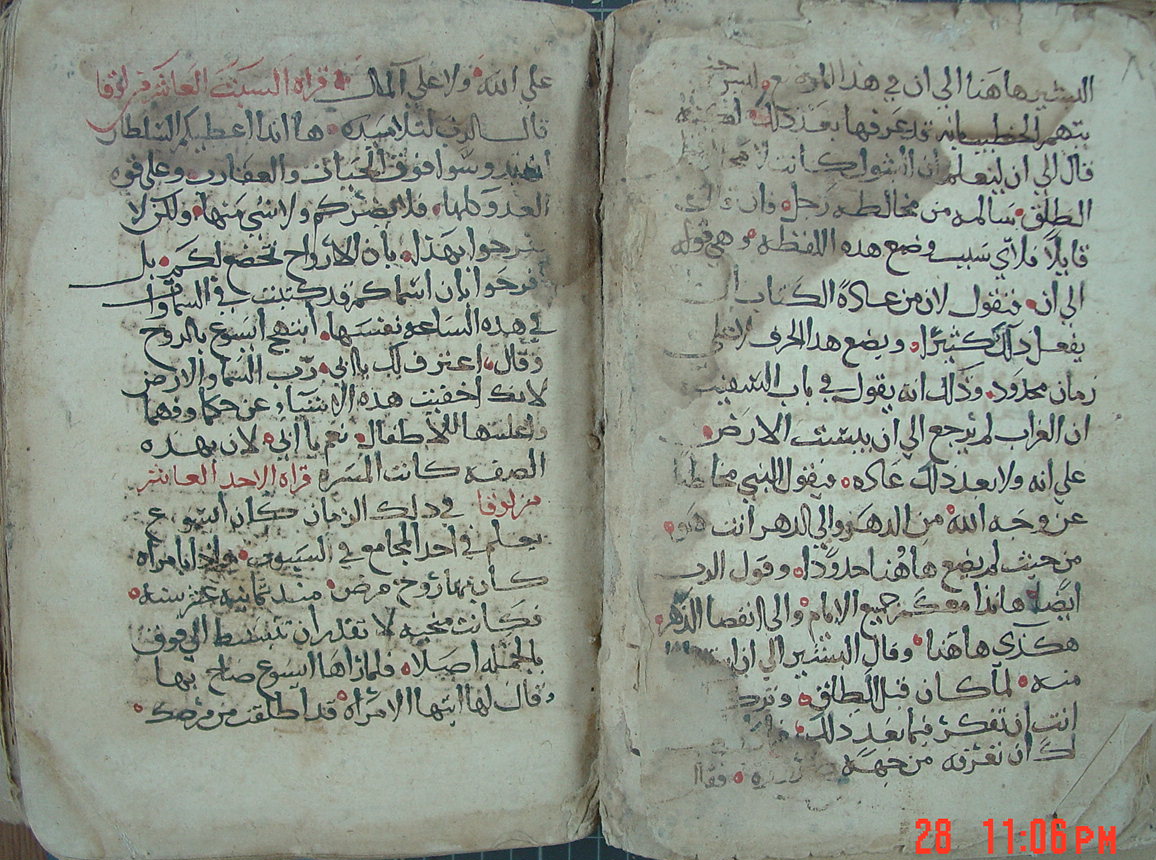 البشير هاهنا الي ان في هدا
قد عرفها بعد دلك
قال الي ان ليتعلم ان البتول كانت
الطلق سالمه من مخالطة رجل فان
قايلاً فلاي سبب وضع هده اللفظه وهي قوله
الي ان فنقول لان من عادة الكتاب ان
يفعل دلك كثيرًا ويضع هدا الحرف
زمان محدود ودلك انه يقول في باب السفينه
ان الغراب لم يرجع الي ان يبست الارض
علي انه ولا بعد دلك عاده ويقول النبي مخاطبًا
عن وجه الله من الدهر والي الدهر انت هو
من حيث لم يضع هاهنا حدودًا وقول الرب
ايضًا هاندا معكم جميع الايام والي انقضا الدهر
هكدي هاهنا وقال البشير الي ان
منه لما كان قبل الطلاق وترك
انت ان تفكر فيما بعد دلك
لك ان تعرفه من جهة
علي الله ولا علي المال قراة السبت العاشر من لوقا
قال الرب لتلاميده ها اندا اعطيكم السلطان
فوق الحيات والعقارب وعلي قوة
العدو كلها فلا يضركم ولا شي منها ولكن لا
تفرحوا بهدا بان الارواح تخضع لكم بل
افرحوا بان اسماكم قد كتبت في السماوات
في هده الساعه نفسها ابتهج ايسوع بالروح
وقال اعترف لك يا ابي رب السما والارض
لانك اخفيت هده الاشياء عن حكما وفهما
واعلنتها للاطفال نعم يا ابي لان بهده
الصفه كانت المسرة قراة الاحد العاشر
من لوقا في دلك الزمان كان ايسوع
يعلم في احد المجامع في السبوت وادا بامراه
كان بها روح مرض مند ثمانية عشر سنه
فكانت منحنيه لا تقدر ان تنبسط الي فوق
بالجمله اصلا فلما راها ايسوع صاح بها
وقال لها ايتها الامراه قد اطلقت من مرضك
28 11:06 PM